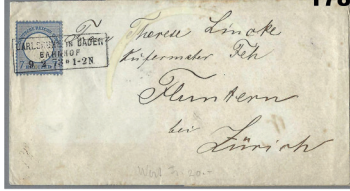 178
CARLSRUHE IN BADEN
BAHNHOF
9 2 7 1-2N
Frau Therese Lincke
Küfermster Feh
Fluntern
bei
Zürich